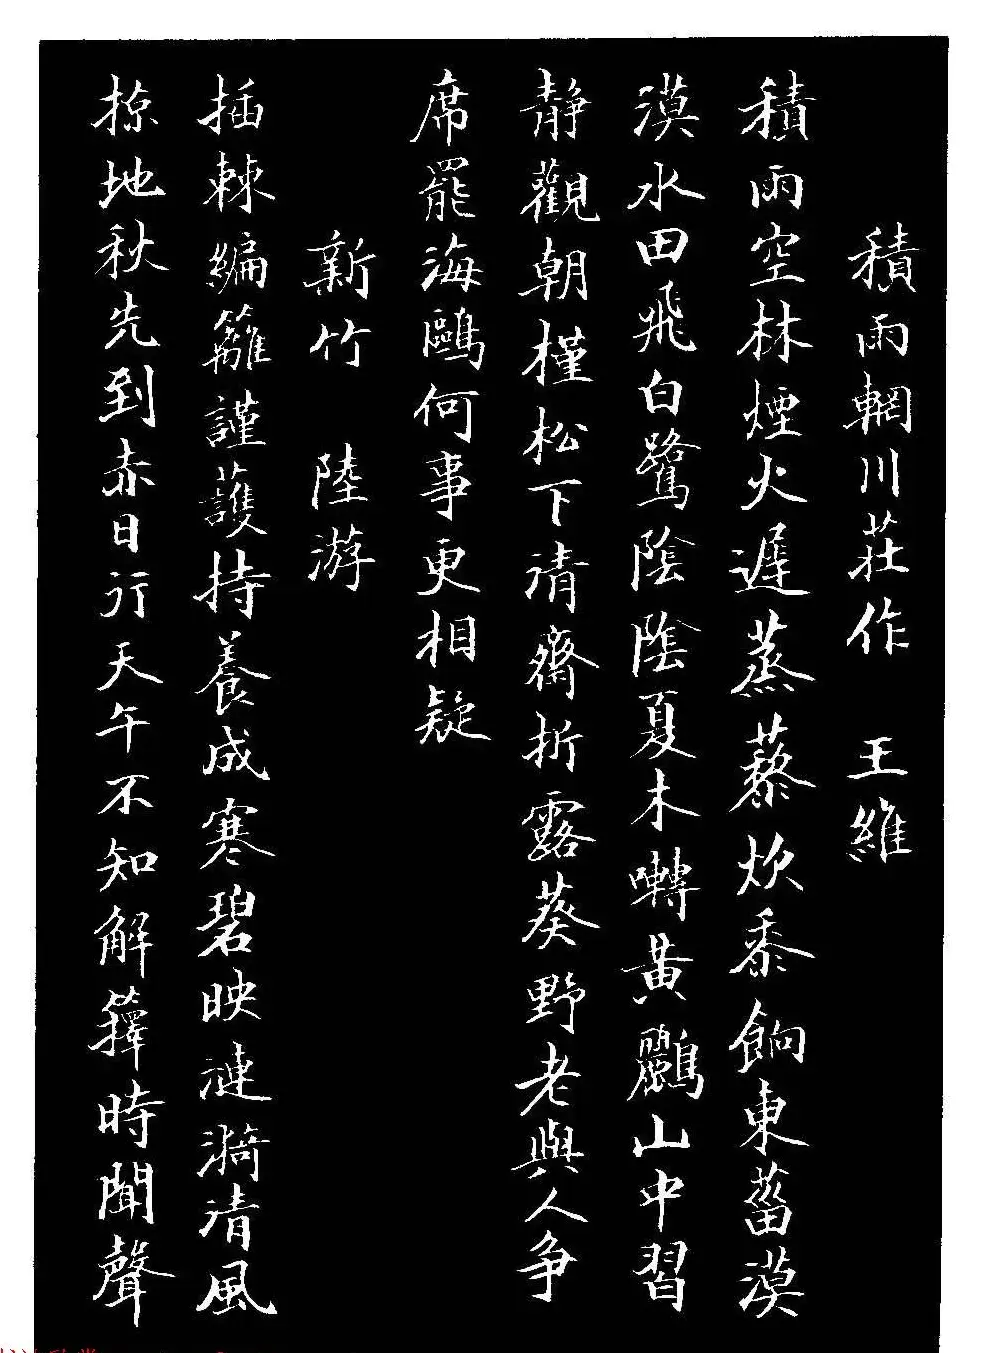 積雨輞川莊作 王維
積雨空林煙火遲蒸藜炊黍餉東菑漠
漠水田飛白鷺陰陰夏木囀黃鸝山中習
靜觀朝槿松下清齋折露葵野老與人爭
席罷海鷗何事更相疑
新竹 陸游
插棘編籬謹護持養成寒碧映漣漪清風
掠地秋先到赤日行天午不知解籜時聞聲